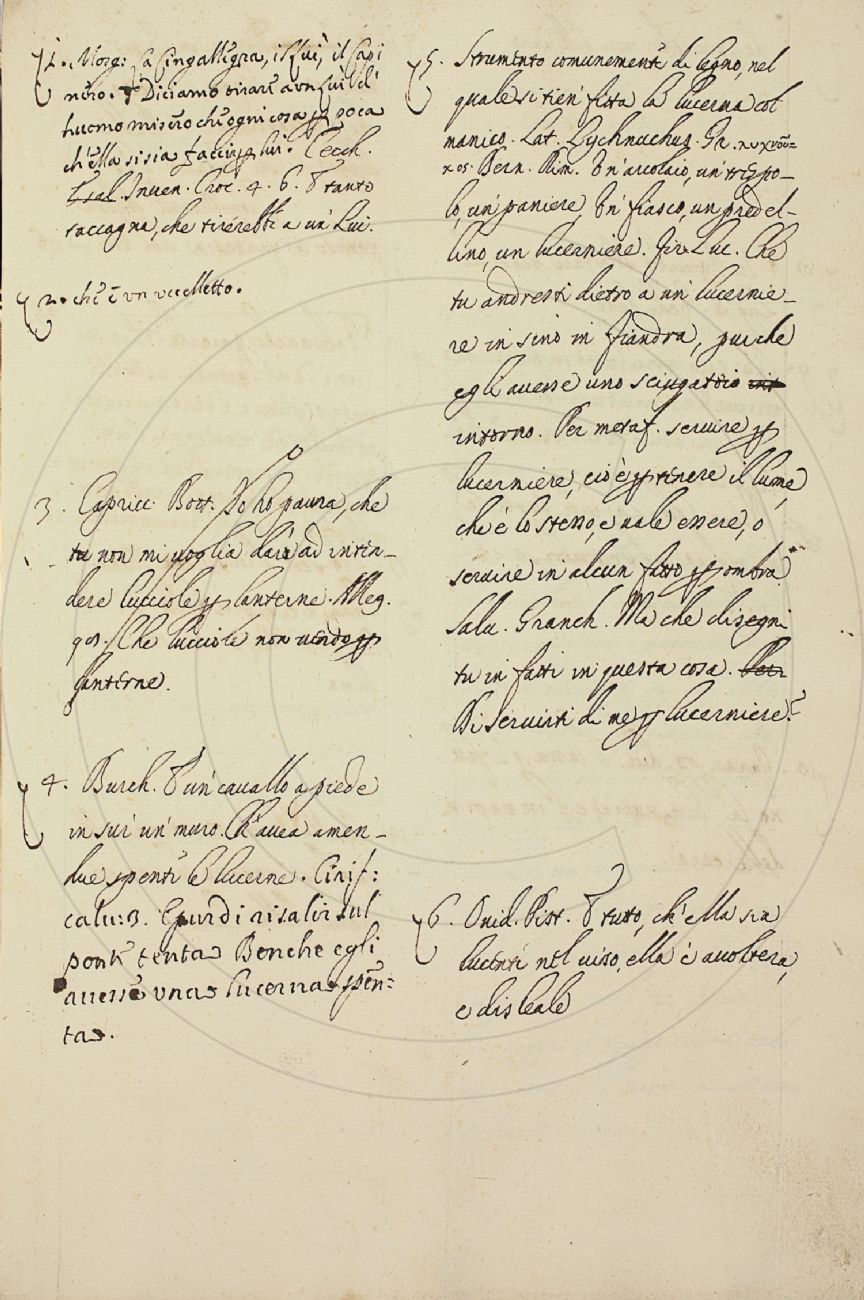 1. Morg: La Cingallegra, il luì, il Capi
nero. Diciamo tirare a un luì di
huomo misero che ogni cosa ꝑ poca
ch'ella si sia facci ꝑ lui. Cecch.
Esal. Inuen. Croc. 4. 6. E tanto
taccagna, che tirerebbe a un' Luì.
2. che è vn vccelletto.
3. Capricc. Bott. Io ho paura, che
tu non mi voglia dare ad inten-
dere lucciole ꝑ lanterne. Alleg.
Che lucciole non vendo ꝑ
lanterne.
4. Burch. E un' cavallo a piede
in sur un' muro. Ch' avea amen-
due spente le lucerne. Cirif:
calu: 3. E pur di risalir sul
ponte tenta Benche egli
auesse vna lucerna spen=
ta.
5. Strumento comunemente di legno, nel
quale si tien' fitta la lucerna col
manico. Lat. Lychnuchus. Gr. λυχνοῦ-
χος. Bern. Rim. Un' arcolaio, un' trespo-
lo, un' paniere, Un' fiasco, un predel-
lino, un lucerniere. Fir. Luc. Che
tu andresti dietro a un' lucernie-
re in sino in fiandra, purche
egli auesse uno sciugatoio int
intorno. Per metaf. seruire ꝑ
lucerniere, cio è ꝑ tenere il lume,
che è lo stesso, e uale essere, o
seruire in alcun fatto ꝑ ombra
Salu. Granch. Ma che disegni
tu in fatti in questa cosa. Per
Di seruirti di me ꝑ lucerniere?
6. Ouid. Pist. E tutto, ch' ella sia
lucente nel uiso, ella è auoltera,
e disleale